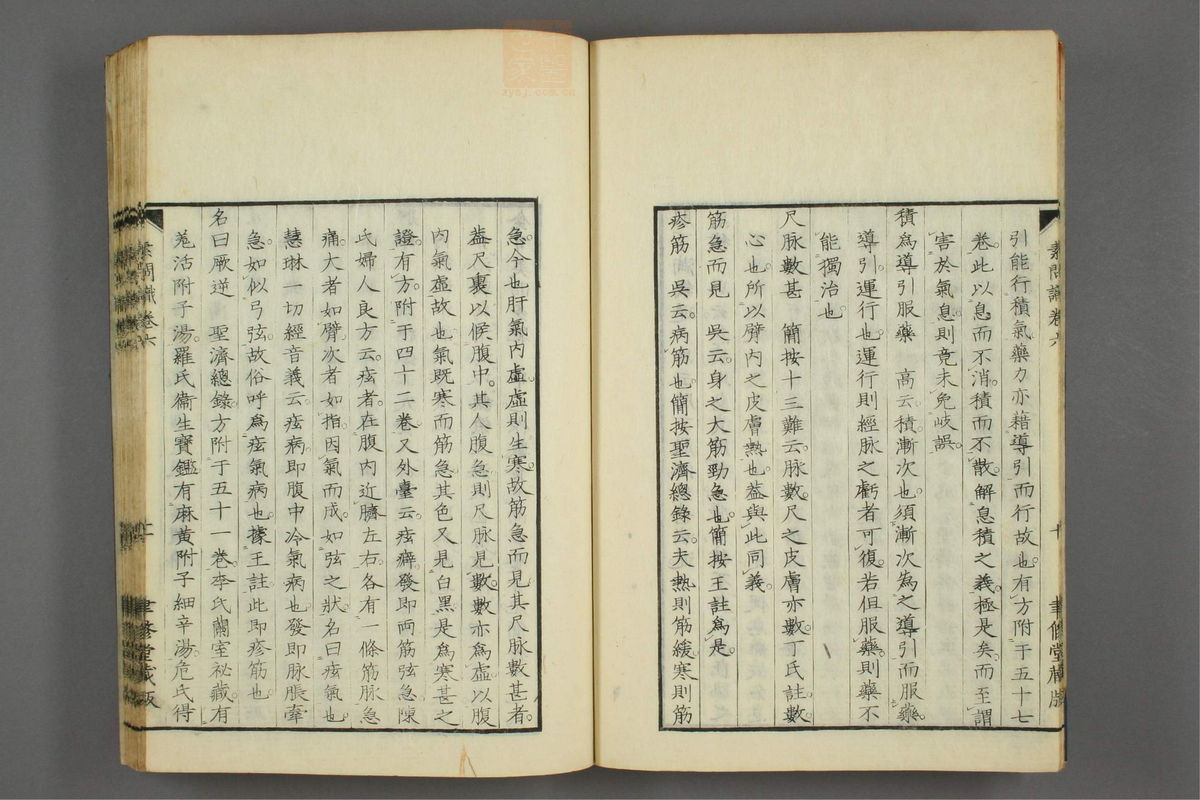 引能行積氣藥力亦藉導引而行故也有方附于五十七
卷此以息而不消積而不散解息積之義極是矣而至謂
害於氣息則竟未免岐誤
積爲導引服藥　高云積漸次也須漸次為之導引而服藥
導引運行也運行則經脉之虧者可復若但服藥則藥不
能獨治也
尺脉數甚　簡按十三難云脉數尺之皮膚亦數丁氏註數
心也所以臂内之皮膚熱也葢與此同義
筋急而見　吳云身之大筋勁急也簡按王註爲是
疹筋　吳云病筋也簡按聖濟總錄云夫熱則筋緩寒則筋
素問識卷六
十
聿修堂藏版
急今也肝氣内虛虛則生寒故筋急而見其尺脉數甚者
葢尺裏以候腹中其人腹急則尺脉見數數亦爲虛以腹
内氣虛故也氣既寒而筋急其色又見白黑是爲寒甚之
證有方附于四十二卷又外臺云痃癖發即兩筋弦急陳
氏婦人良方云痃者在腹内近臍左右各有一條筋脉急
痛大者如臂次者如指因氣而成如弦之狀名曰痃氣也
慧琳一切經音義云痃病即腹中冷氣病也發即脉脹牽
急如似弓弦故俗呼爲痃氣病也據王註此即疹筋也
名曰厥逆　聖濟總錄方附于五十一卷李氏蘭室祕藏有
羌活附子湯羅氏衞生寶鑑有麻黃附子細辛湯危氏得
素問識卷六
聿修堂藏版